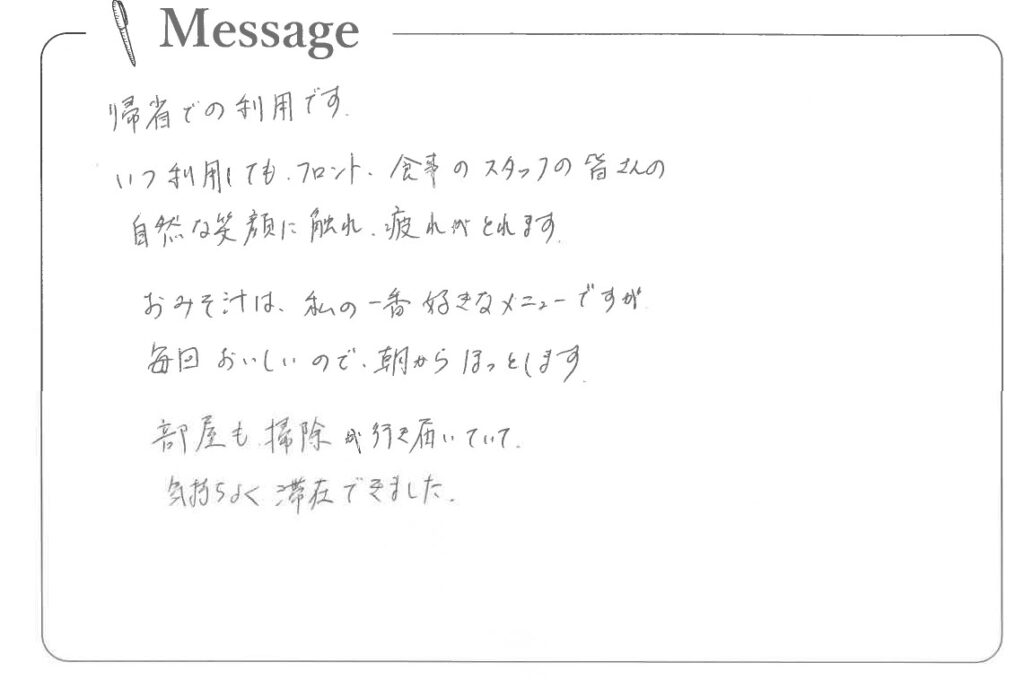 Message
帰省での利用です.
いつ利用しても、フロント、食事のスタッフの皆さんの
自然な笑顔に触れ、疲れがとれます.
おみそ汁は、私の一番好きなメニューですが
毎回おいしいので、朝からほっとします.
部屋も、掃除が行き届いていて、
気持ちよく滞在できました.